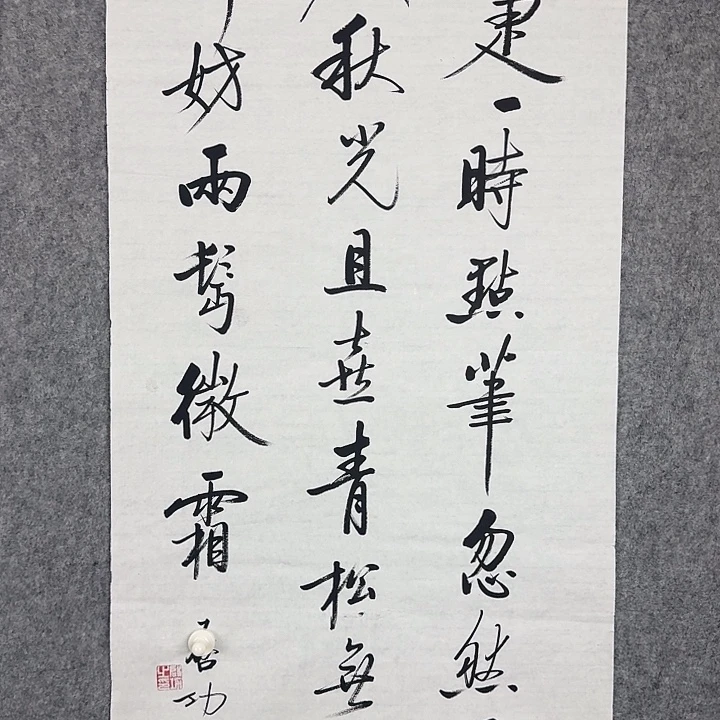 一時點筆忽然
秋光且喜青松無
妨兩鬢微霜
启功